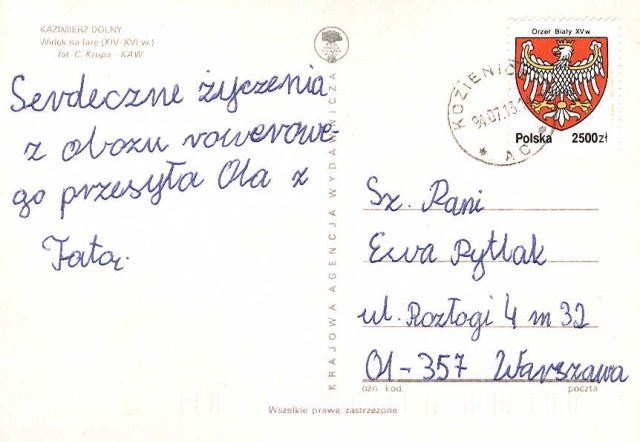 KAZIMIERZ DOLNY
Widok na farę (XIV-XVI w.)
fot. C. Krupa KAW
Serdeczne życzenia
z obozu rowerowe-
go przesyła Ola z
Tatą.
KRAJOWA AGENCJA WYDAWNICZA
Orzeł Biały XVw.
Polska 2500zł
94.07.13
Sz. Pani
Ewa Pytlak
ul. Rozłogi 4 m 32
01-357 Warszawa
ozn. kod. poczta
Wszelkie prawa zastrzeżone